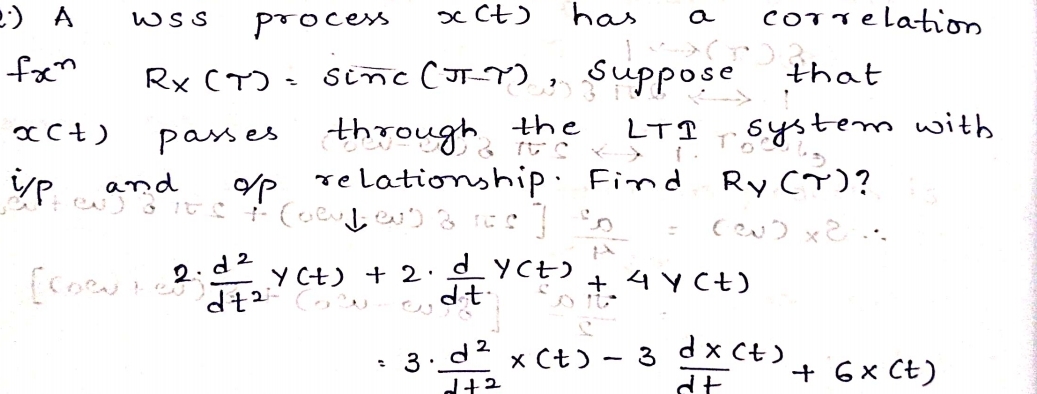 2:) A WSS process x(t) has a correlation
fxn Rx(τ) = sinc(πτ), Suppose that
x(t) passes through the LTI system with
i/p and o/p relationship. Find Ry(τ)?
↓
2. d²/dt² y(t) + 2. d/dt y(t) + 4 y(t)
= 3. d²/dt² x(t) - 3 dx(t)/dt + 6x(t)